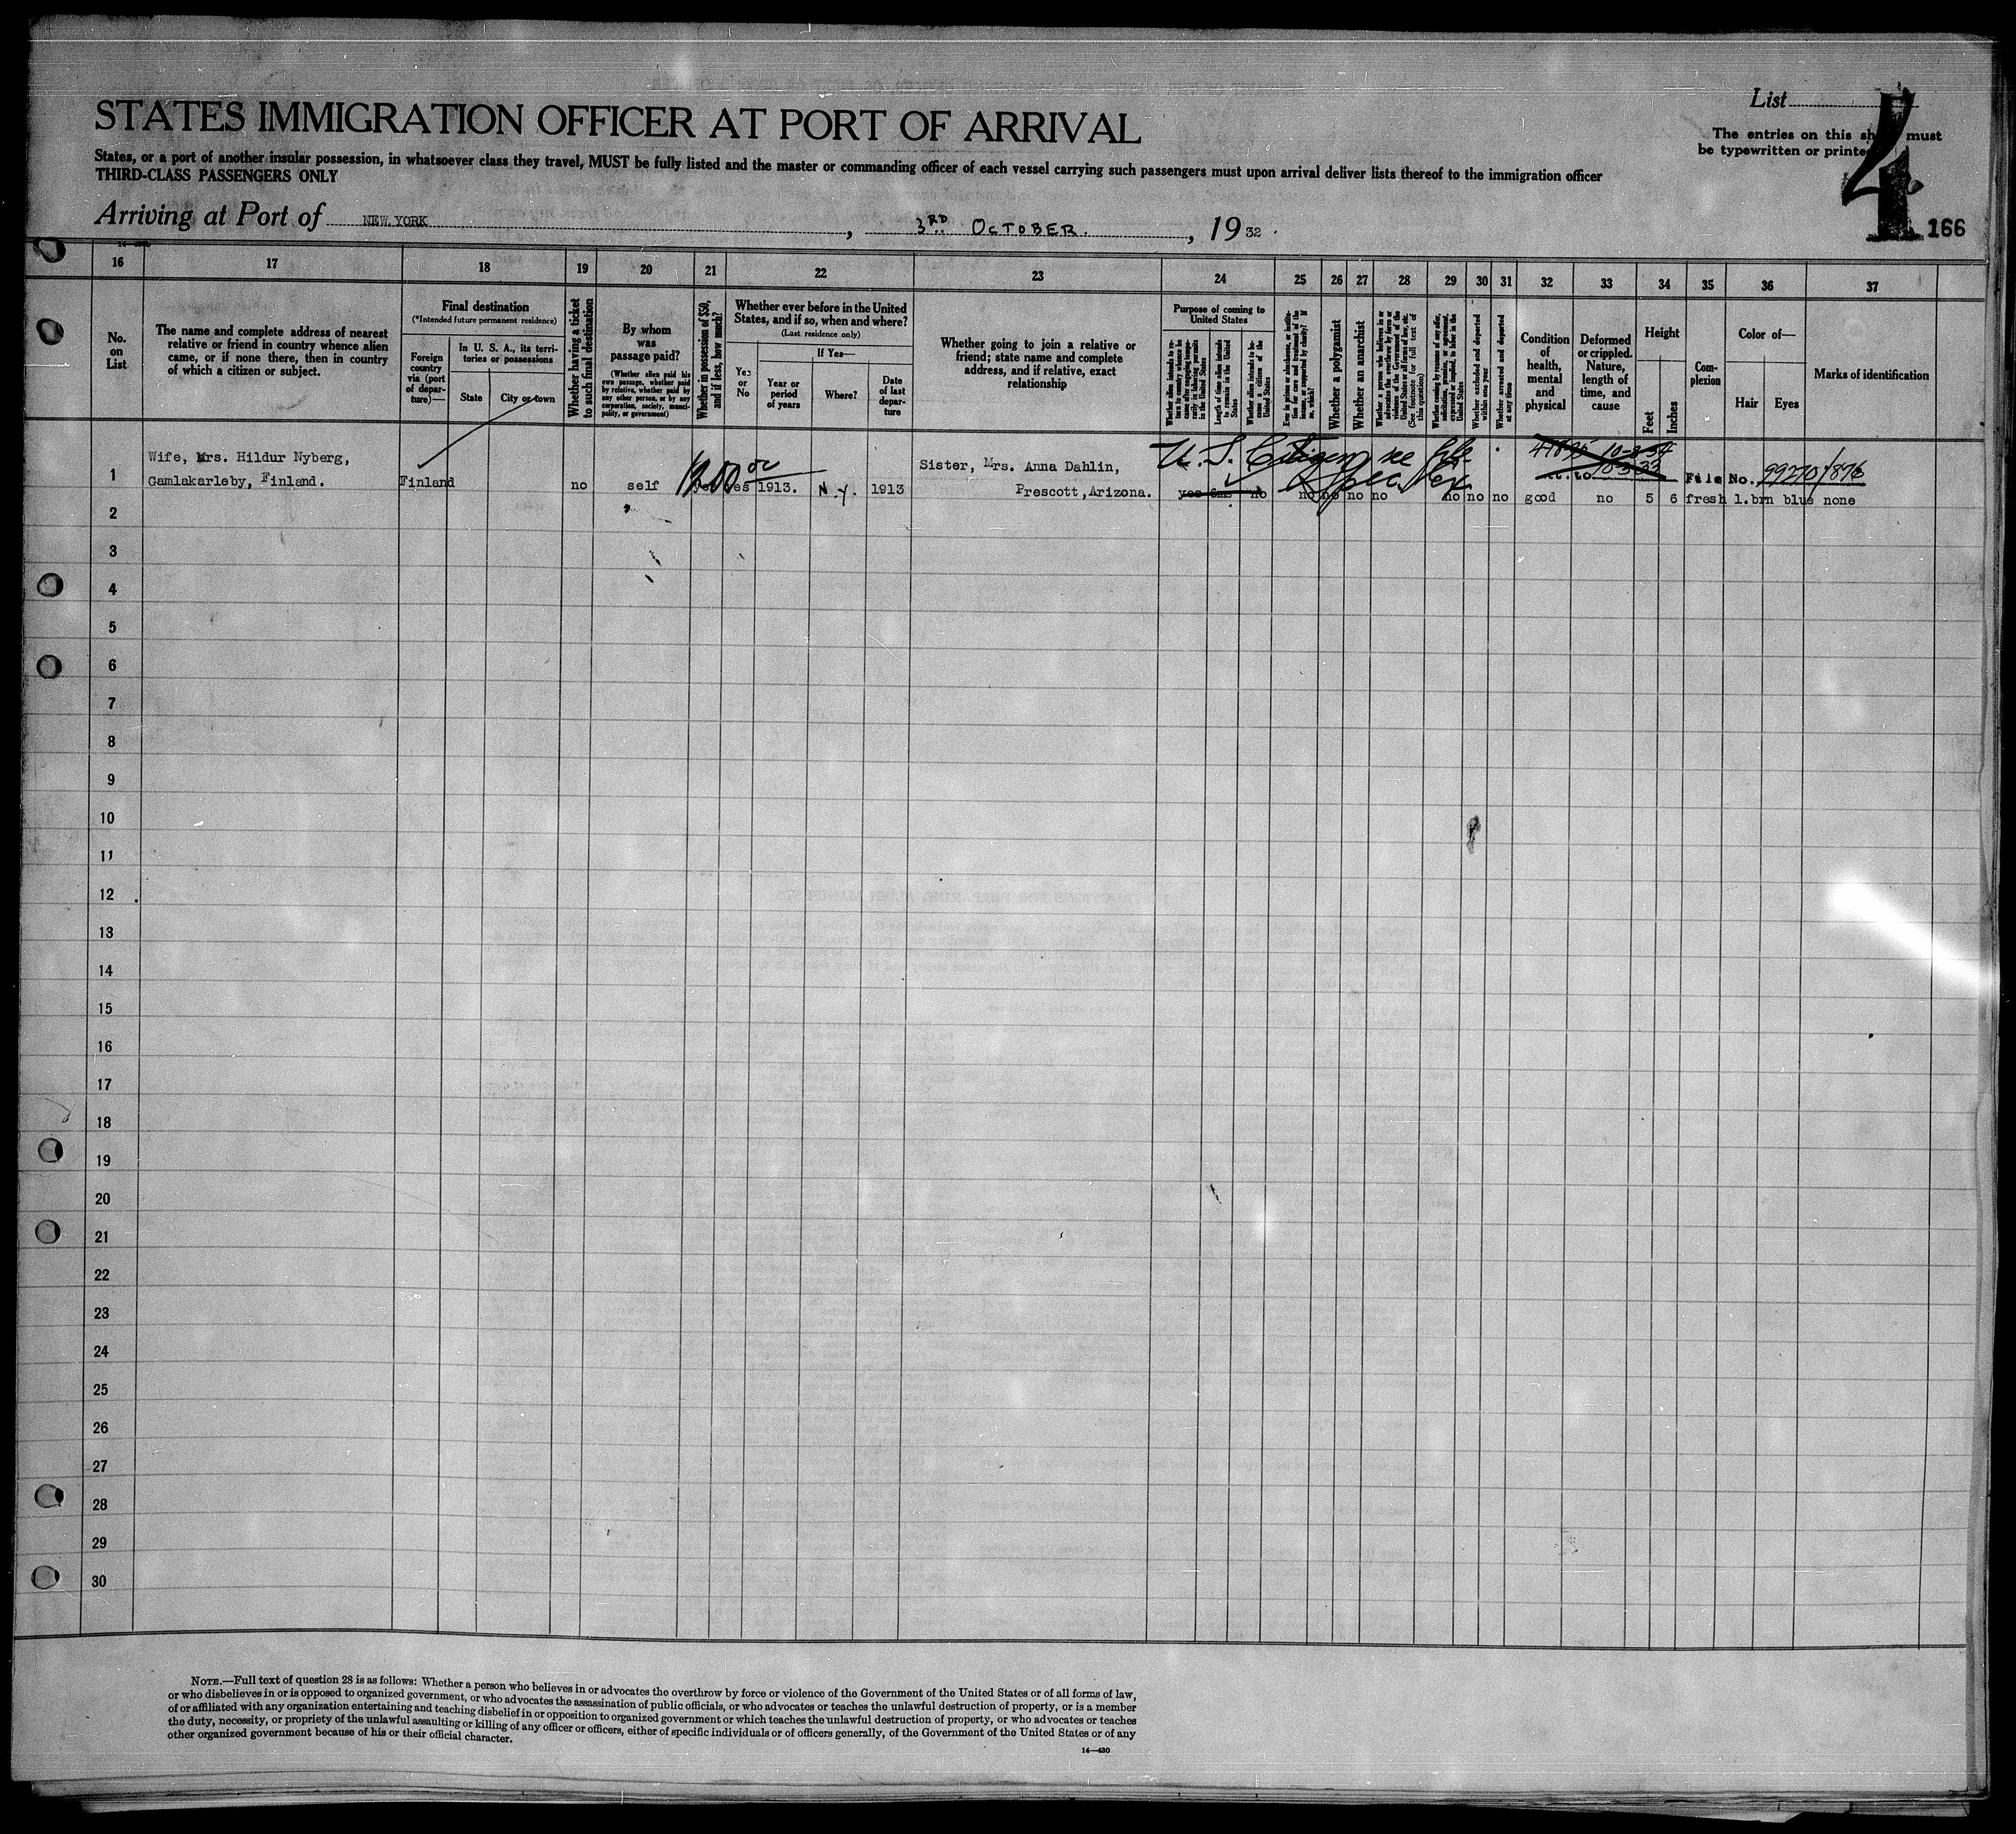 List
4
The entries on this sh must
be typewritten or printe
STATES IMMIGRATION OFFICER AT PORT OF ARRIVAL
States, or a port of another insular possession, in whatsoever class they travel, MUST be fully listed and the master or commanding officer of each vessel carrying such passengers must upon arrival deliver lists thereof to the immigration officer
THIRD-CLASS PASSENGERS ONLY
Arriving at Port of NEW YORK, 3RD OCTOBER, 1932.
166
16 17 18 19 20 21 22 23 24 25 26 27 28 29 30 31 32 33 34 35 36 37
No. on List
The name and complete address of nearest
relative or friend in country whence alien
came, or if none there, then in country
of which a citizen or subject.
Final destination
(*Intended future permanent residence)
Foreign
country
via (port
of depar-
ture)—
In U. S. A., its terri-
tories or possessions
State
City or town
Whether having a ticket
to such final destination
By whom
was
passage paid?
(Whether alien paid his
own passage, whether paid
by relative, whether paid by
any other person, or by any
corporation, society, munici-
pality, or government)
Whether in possession of $50,
and if less, how much?
Whether ever before in the United
States, and if so, when and where?
(Last residence only)
Yes
or
No
If Yes—
Year or
period
of years
Where?
Date
of last
depar-
ture
Whether going to join a relative or
friend; state name and complete
address, and if relative, exact
relationship
Purpose of coming to
United States
Length of time alien intends
to remain in the United
States
Whether alien intends to be-
come a citizen of the
United States
Whether a polygamist
Whether an anarchist
(See footnote for full text of
this question)
Whether excluded and deported
within one year
Whether arrested and deported
at any time
Condition
of
health,
mental
and
physical
Deformed
or crippled.
Nature,
length of
time, and
cause
Height
Feet
Inches
Com-
plexion
Color of—
Hair
Eyes
Marks of identification
1
Wife, Mrs. Hildur Nyberg,
Gamlakarleby, Finland.
Finland
no
self
1200 00
1913.
N.Y.
1913
Sister, Mrs. Anna Dahlin,
Prescott, Arizona.
U. S. Citizen
yes 6ms no
no no no no no no no good no 5 6 fresh l.brn blue none
File No. 99270/876
2
3
4
5
6
7
8
9
10
11
12
13
14
15
16
17
18
19
20
21
22
23
24
25
26
27
28
29
30
NOTE.—Full text of question 28 is as follows: Whether a person who believes in or advocates the overthrow by force or violence of the Government of the United States or of all forms of law,
or who disbelieves in or is opposed to organized government, or who advocates the assassination of public officials, or who advocates or teaches the unlawful destruction of property, or is a member
of or affiliated with any organization entertaining and teaching disbelief in or opposition to organized government or which teaches the unlawful destruction of property, or who advocates or teaches
the duty, necessity, or propriety of the unlawful assaulting or killing of any officer or officers, either of specific individuals or of officers generally, of the Government of the United States or of any
other organized government because of his or their official character.
14—430